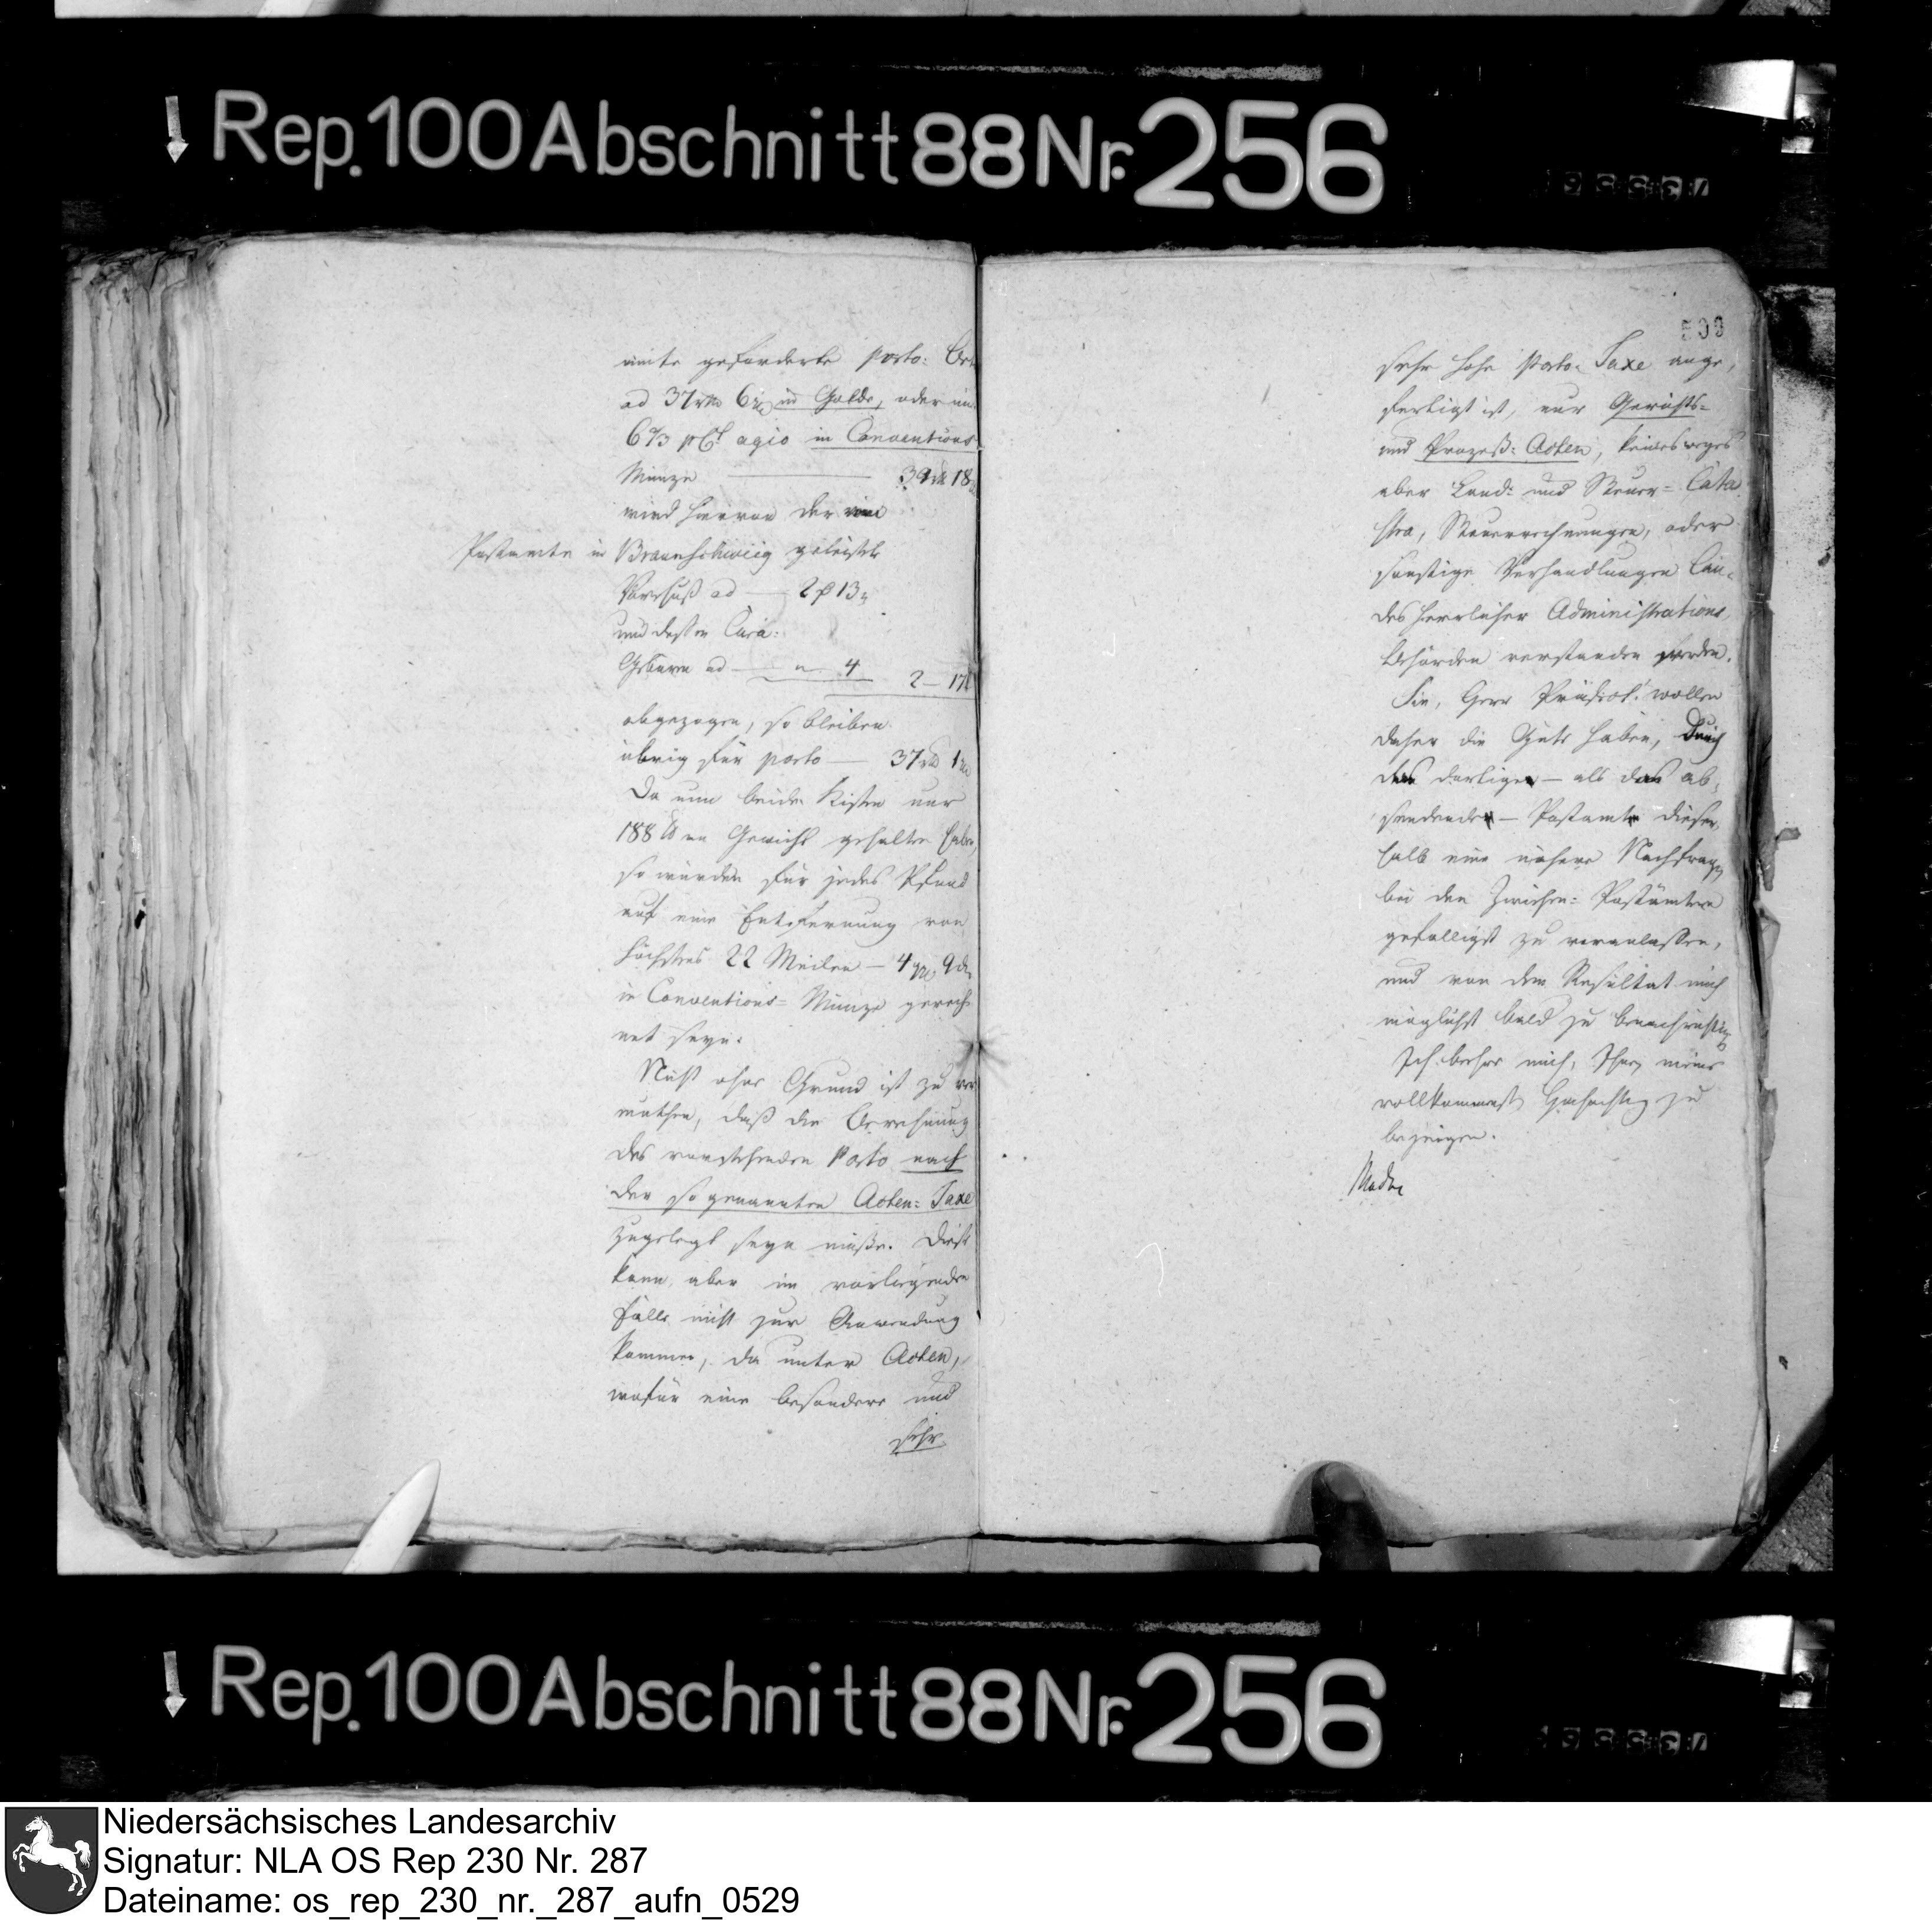 Rep. 100 Abschnitt 88 Nr. 256
amte geforderte Porto:
ad 37 rth 6 in Golde, oder
6 2/3 pCt agio in Conventions
Münze 39 rth 18
wird hievon der
Postamte in Braunschweig geleistete
Vorschuß ad — 2 13
und dessen
Gebüren ad — „ 4 2 — 17
abgezogen, so bleiben
übrig für porto — 37 rth 1
Da nun beide Kisten nur
188 ℔ an Gewicht gehalten haben,
so würden für jedes Pfund
auf eine Entfernung von
höchstens 22 Meilen — 4 9
in Conventions= Münze gerech=
net seyn.
Nicht ohne Grund ist zu ver
muthen, daß die Berechnung
des vorstehenden Porto nach
der so genannten Acten= Taxe
zugelegt seyn müße. Diese
kann aber im vorliegenden
Falle nicht zur Anwendung
kommen, da unter Acten,
wofür eine besondere und
sehr
509
sehr hohe Porto= Taxe ange,
fertigt ist, nur Gerichts=
und Prozeß= Acten, keinesweges
aber Land= und Steuer= Cata
stra, Steuerrechnungen, oder
sonstige Verhandlungen Lan=
desherrlicher Administrations,
behörden verstanden werden.
Sie, Herr wollen
daher die Güte haben, durch
das dortige — als das ab,
sendende — Postamt dieser,
halb eine nähere Nachfrage
bei den Zwischen= Postämtern
gefälligst zu veranlassen,
und von dem Resultat mich
möglichst bald zu benachrichtigen
Ich beehre mich, Ihnen meine
vollkommenste Hochachtung zu
bezeigen.
Rep. 100 Abschnitt 88 Nr. 256
Niedersächsisches Landesarchiv
Signatur: NLA OS Rep 230 Nr. 287
Dateiname: os_rep_230_nr._287_aufn_0529